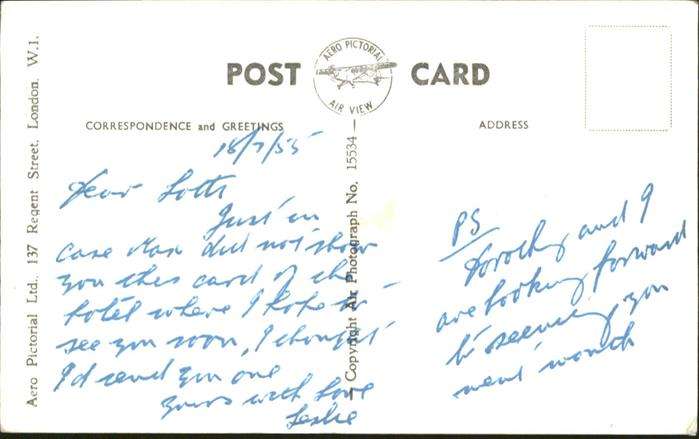 POST CARD
AERO PICTORIAL
AIR VIEW
CORRESPONDENCE and GREETINGS
ADDRESS
18/7/55
Dear Lotte
Just in
case Max did not show
you this card of the
hotel where I hope to
see you soon, I thought
I'd send you one
yours with love
Leslie
PS
Dorothy and I
are looking forward
to seeing you
next month
Aero Pictorial Ltd., 137 Regent Street, London, W.1.
Copyright Air Photograph No. 15534